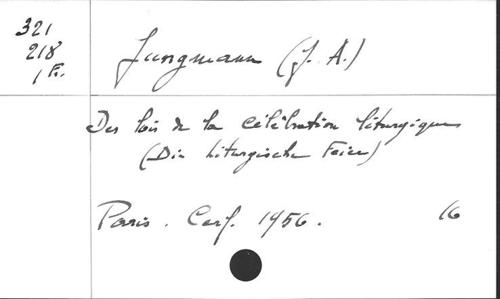 321
218
1 Fi.
Jungmann (J. A.)
Des lois de la célébration liturgique
(Die Liturgische Feier)
Paris. Cerf. 1956.
16